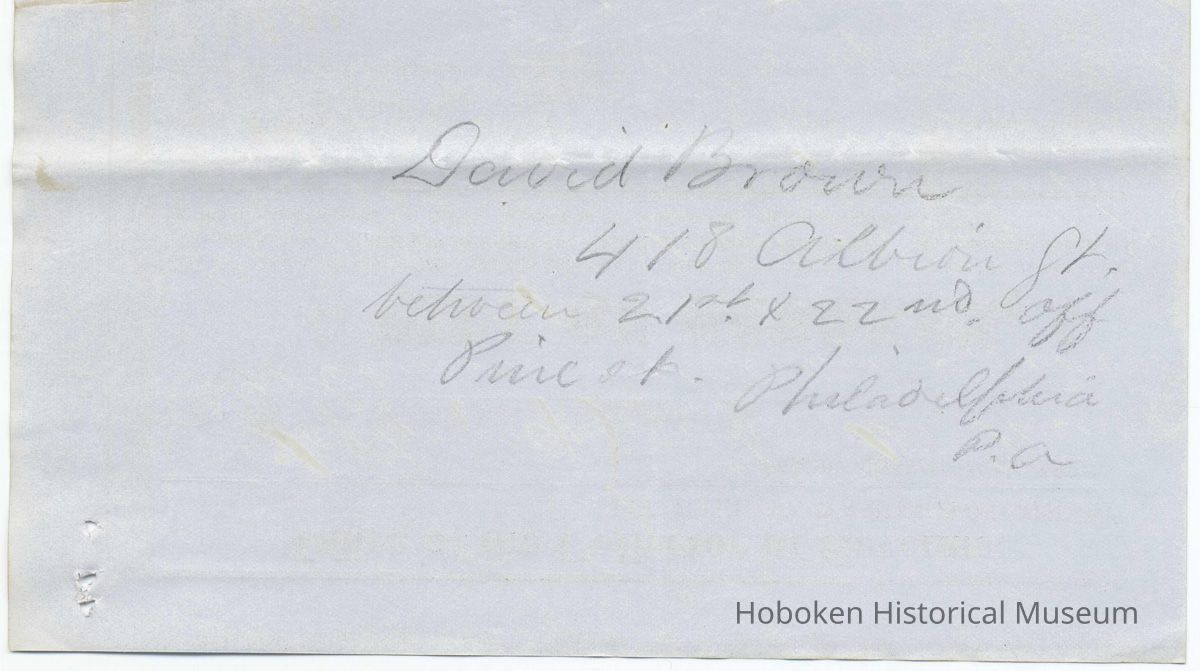 David Brown
418 Albion St.
between 21st. & 22nd. off
Pine st. Philadelphia
P.a
Hoboken Historical Museum